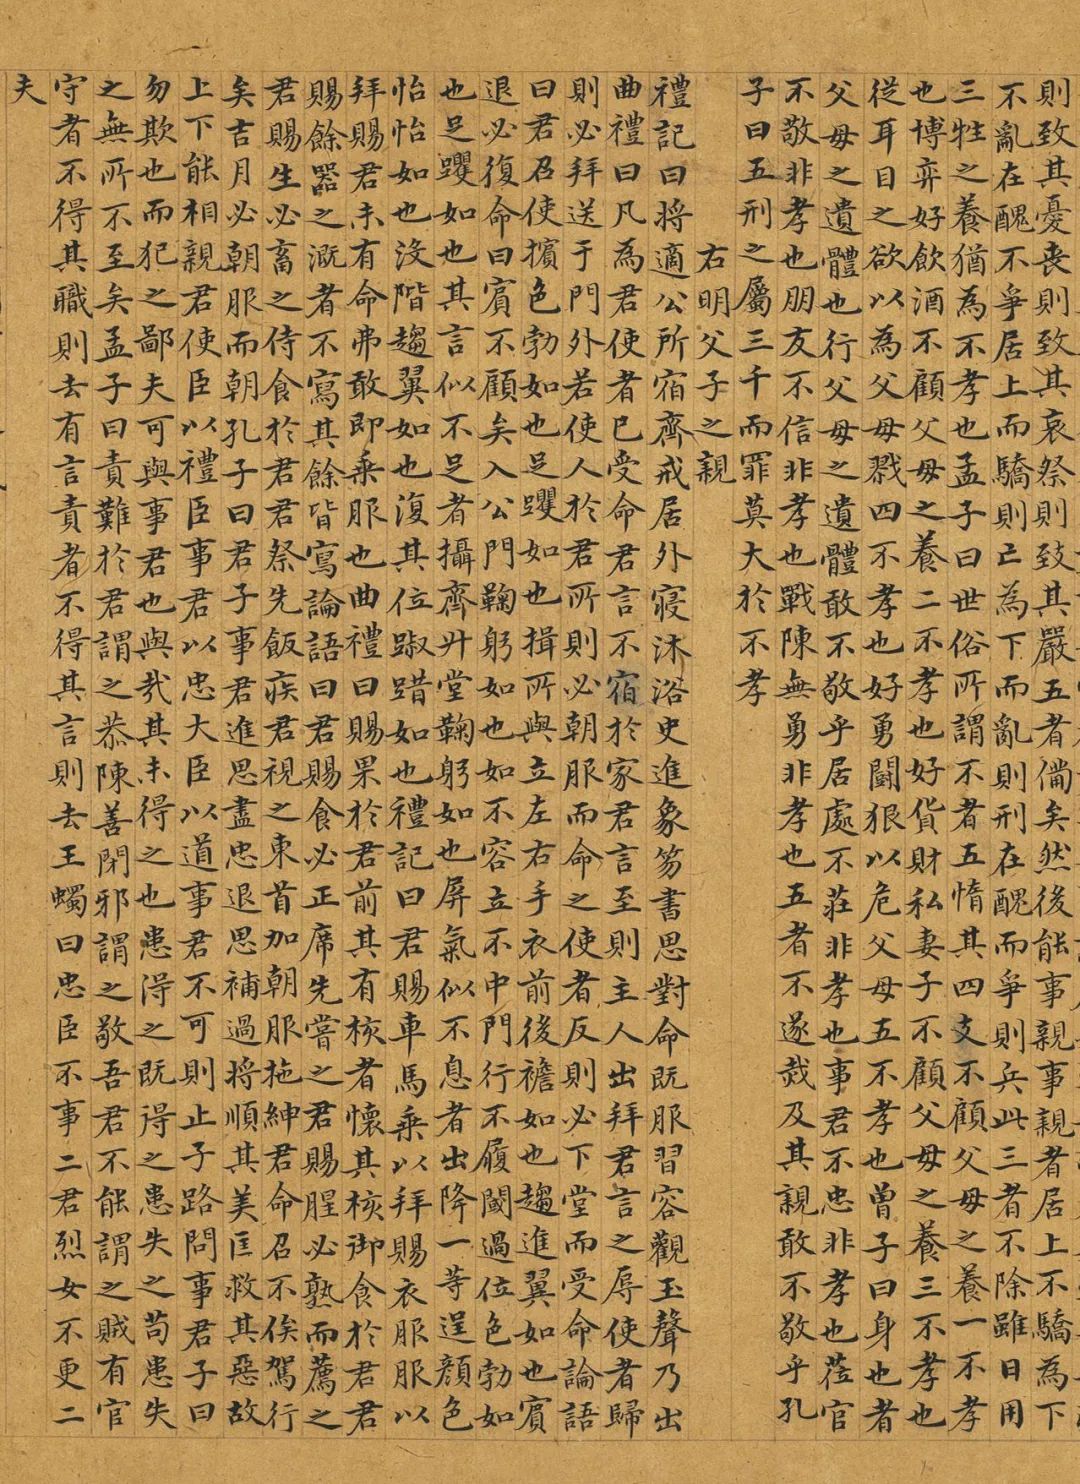 則致其憂喪則致其哀祭則致其嚴五者備矣然後能事親事親者居上不驕為下
不亂在醜不爭居上而驕則亡為下而亂則刑在醜而爭則兵此三者不除雖日用
三牲之養猶為不孝也孟子曰世俗所謂不者五惰其四支不顧父母之養一不孝
也博弈好飲酒不顧父母之養二不孝也好貨財私妻子不顧父母之養三不孝也
從耳目之欲以為父母戮四不孝也好勇鬪狠以危父母五不孝也曾子曰身也者
父母之遺體也行父母之遺體敢不敬乎居處不莊非孝也事君不忠非孝也莅官
不敬非孝也朋友不信非孝也戰陳無勇非孝也五者不遂烖及其親敢不敬乎孔
子曰五刑之屬三千而罪莫大於不孝
右明父子之親
禮記曰將適公所宿齊戒居外寢沐浴史進象笏書思對命既服習容觀玉聲乃出
曲禮曰凡為君使者已受命君言不宿於家君言至則主人出拜君言之辱使者歸
則必拜送于門外若使人於君所則必朝服而命之使者反則必下堂而受命論語
曰君召使擯色勃如也足躩如也揖所與立左右手衣前後襜如也趨進翼如也賓
退必復命曰賓不顧矣入公門鞠躬如也如不容立不中門行不履閾過位色勃如
也足躩如也其言似不足者攝齊升堂鞠躬如也屏氣似不息者出降一等逞顏色
怡怡如也沒階趨翼如也復其位踧踖如也禮記曰君賜車馬乘以拜賜衣服服以
拜賜君未有命弗敢即乘服也曲禮曰賜果於君前其有核者懷其核御食於君君
賜餘器之溉者不寫其餘皆寫論語曰君賜食必正席先嘗之君賜腥必熟而薦之
君賜生必畜之侍食於君君祭先飯疾君視之東首加朝服拖紳君命召不俟駕行
矣吉月必朝服而朝孔子曰君子事君進思盡忠退思補過將順其美匡救其惡故
上下能相親君使臣以禮臣事君以忠大臣以道事君不可則止子路問事君子曰
勿欺也而犯之鄙夫可與事君也與哉其未得之也患得之既得之患失之苟患失
之無所不至矣孟子曰責難於君謂之恭陳善閉邪謂之敬吾君不能謂之賊有官
守者不得其職則去有言責者不得其言則去王蠋曰忠臣不事二君烈女不更二
夫